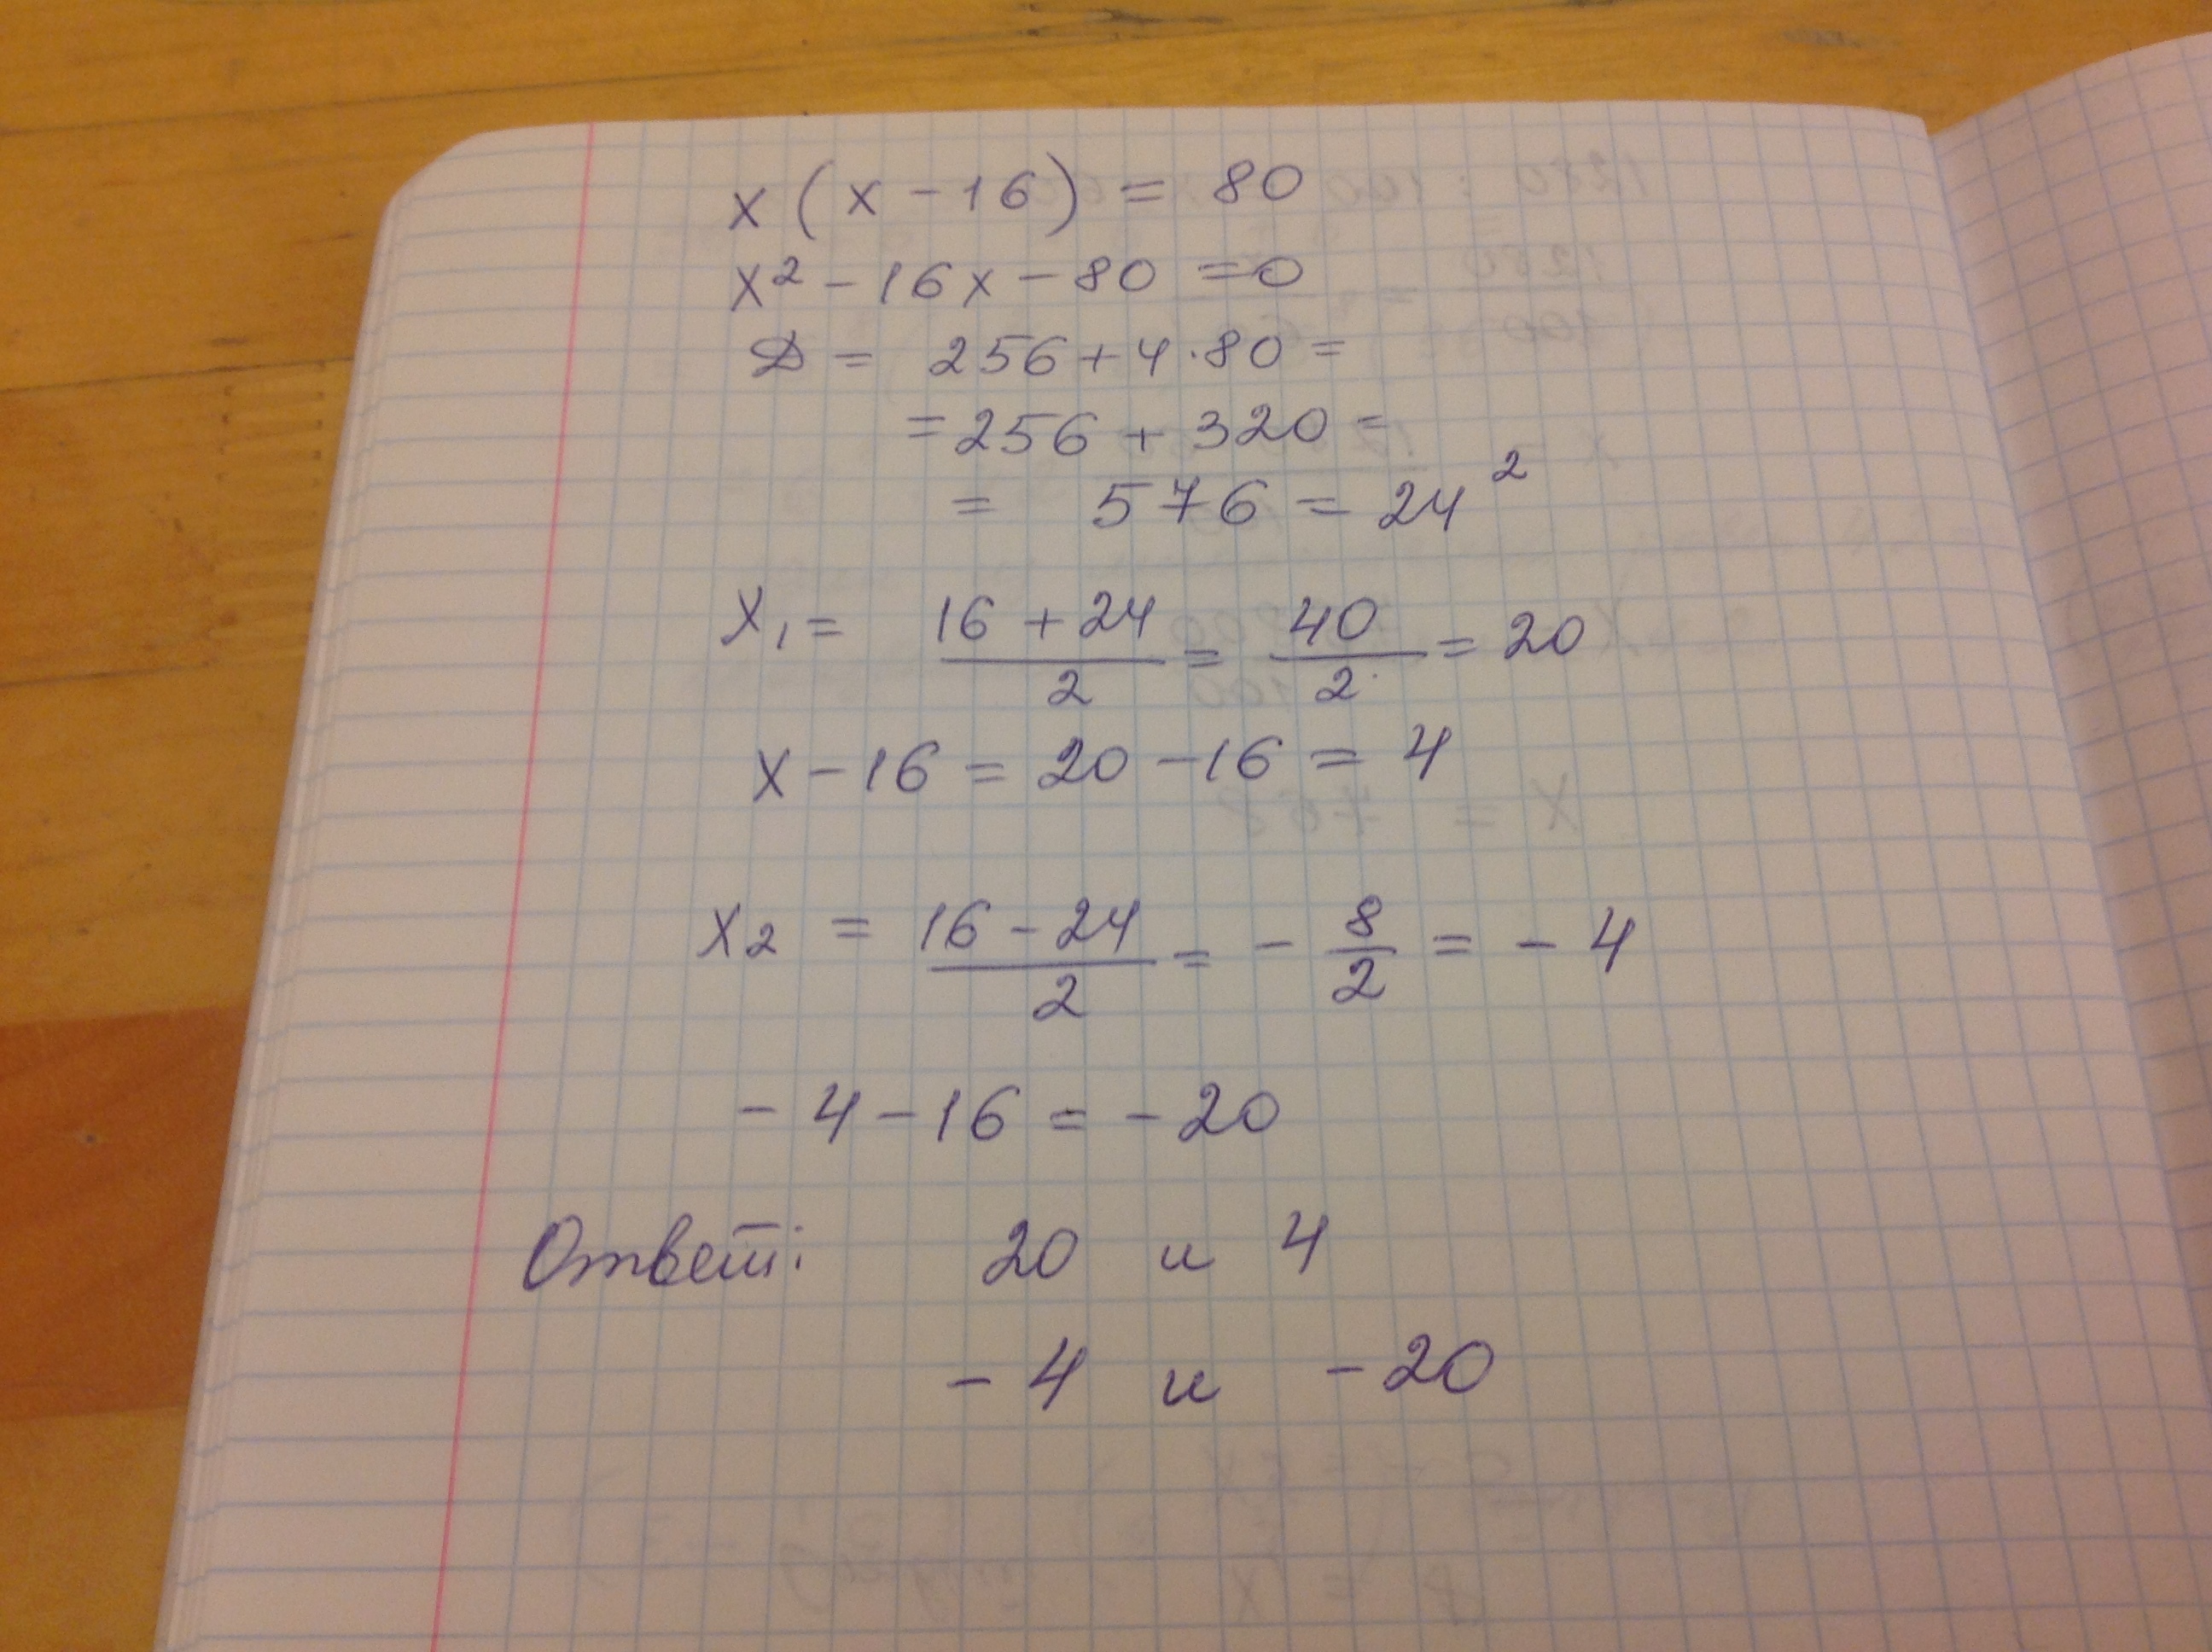 x(x-16) = 80
x² - 16x - 80 = 0
D = 256 + 4·80 =
= 256 + 320 =
= 576 = 24²
x₁ = (16 + 24)/2 = 40/2 = 20
x - 16 = 20 - 16 = 4
x₂ = (16 - 24)/2 = - 8/2 = - 4
- 4 - 16 = - 20
Ответ: 20 и 4
- 4 и - 20